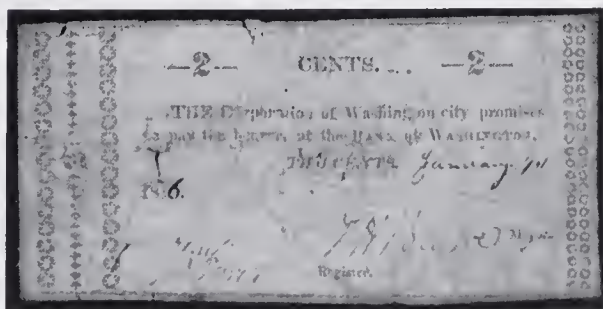 2 CENTS. 2
THE Corporation of Washington city promises
to pay the bearer, at the BANK of WASHINGTON,
TWO CENTS. January
1816.
Mayor
Register.